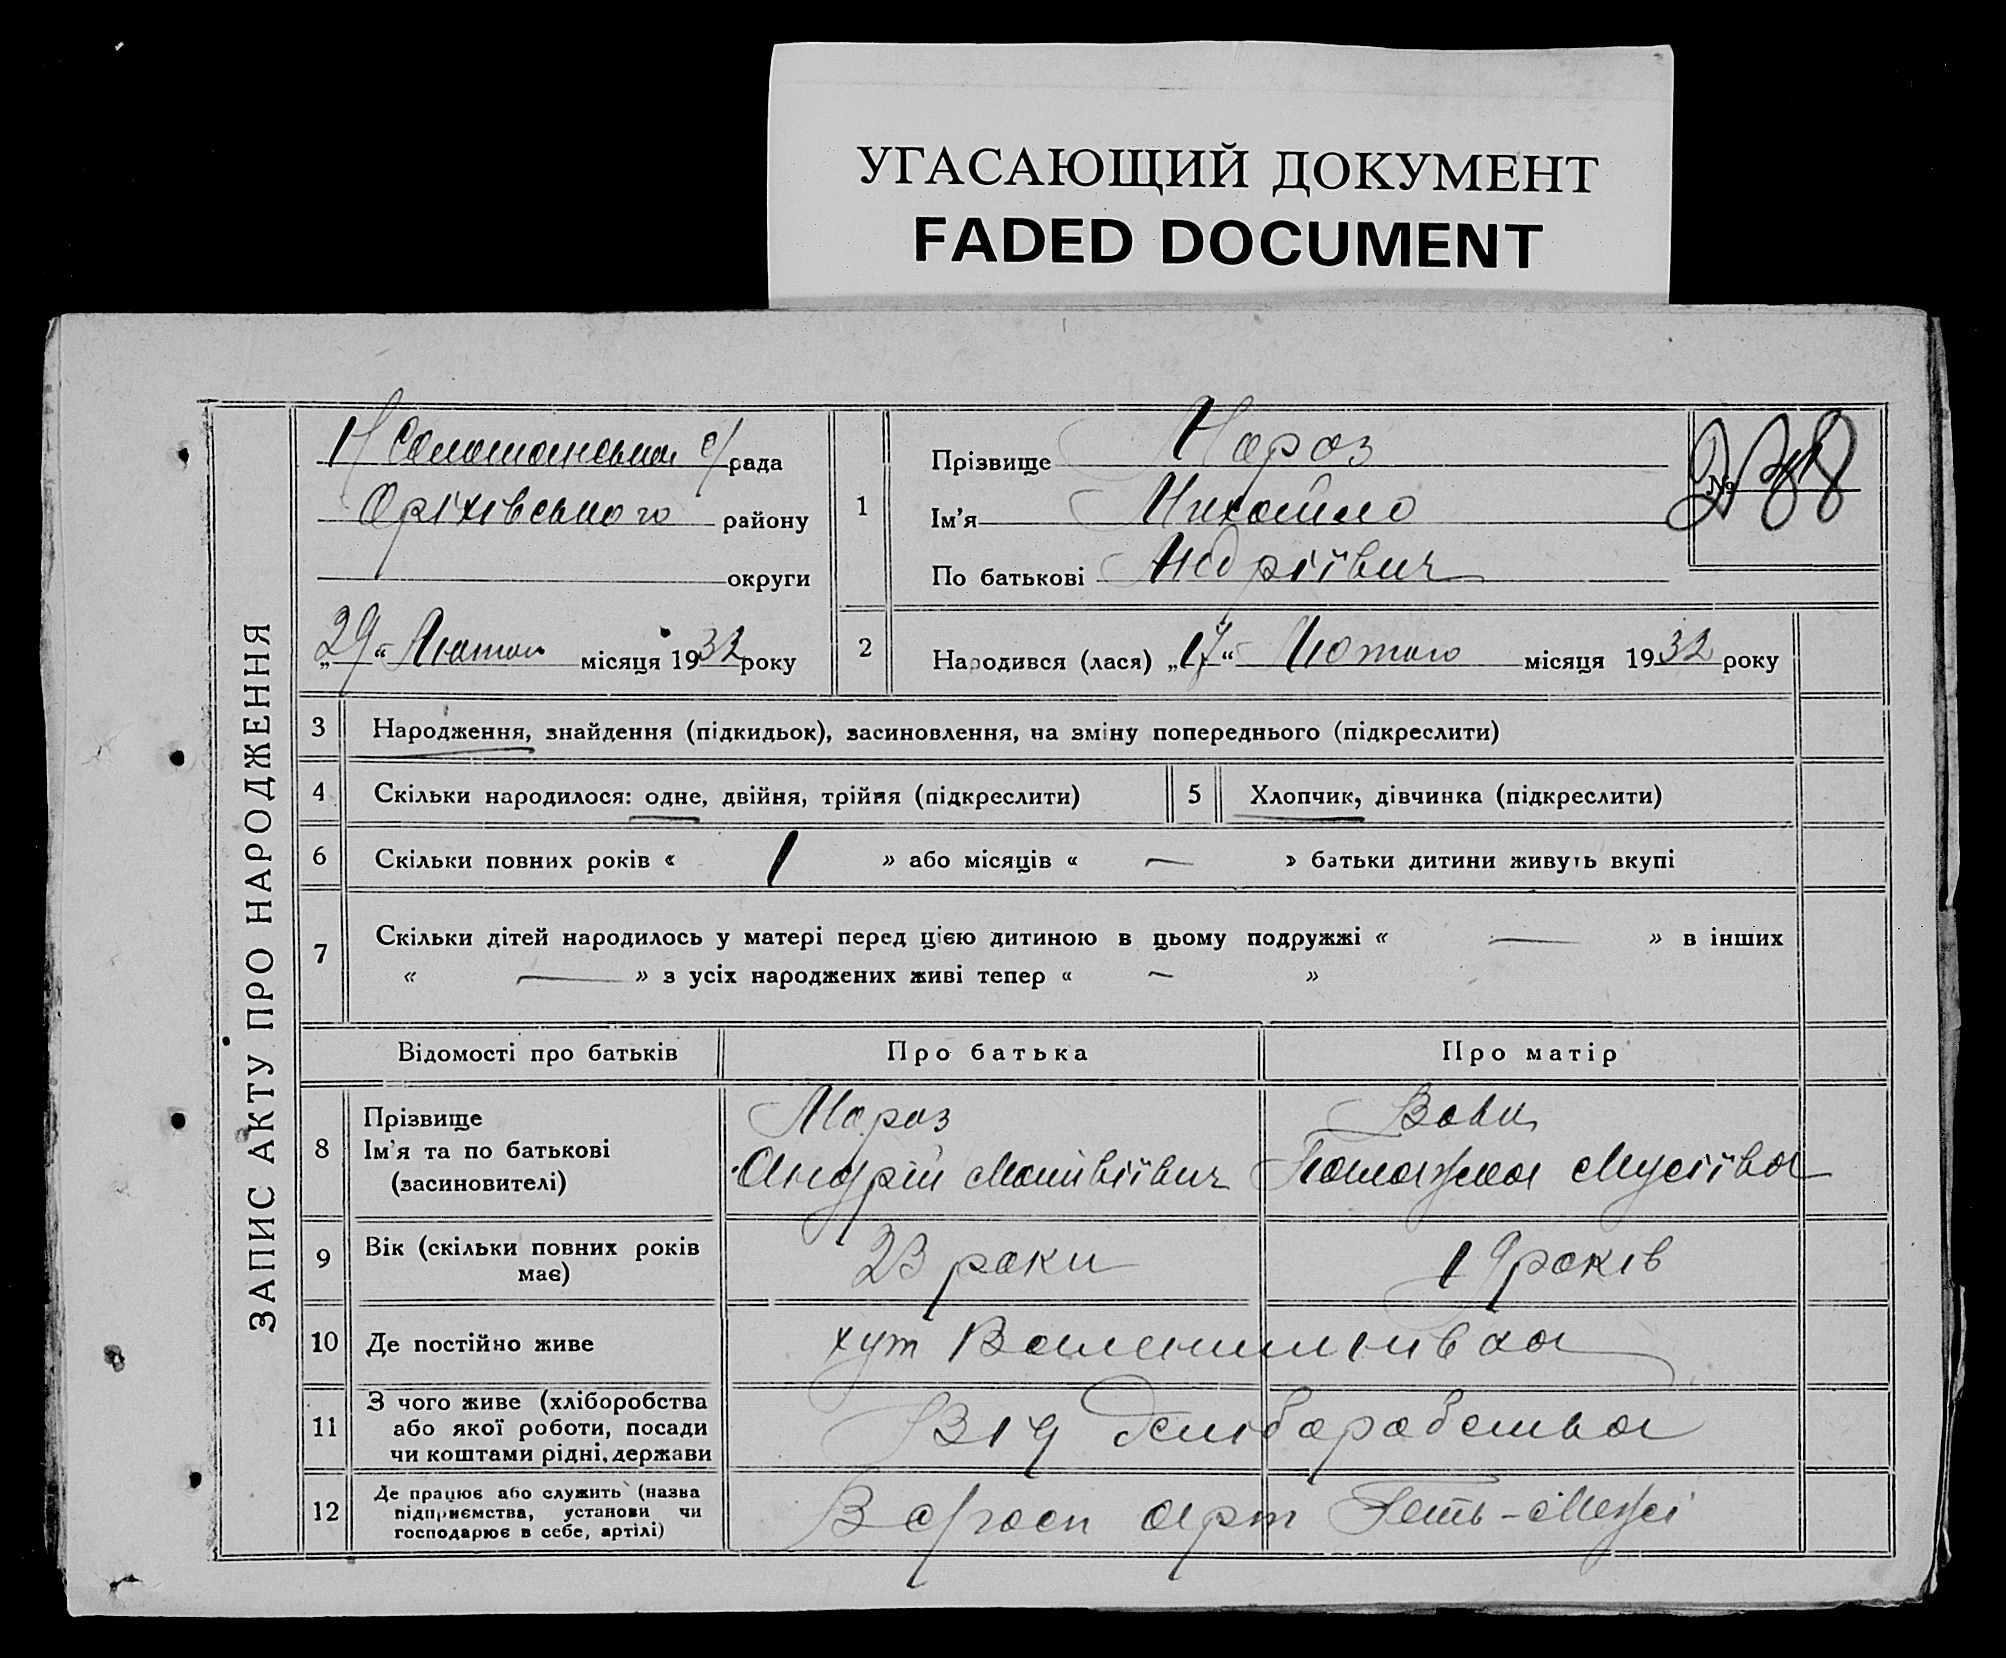 УГАСАЮЩИЙ ДОКУМЕНТ
FADED DOCUMENT
ЗАПИС АКТУ ПРО НАРОДЖЕННЯ
с/рада
Оріхівського району
округи
„29“ Лютого місяця 1932 року
1
Прізвище Мороз
Ім'я Михайло
По батькові Андріївич
№
2
Народився (лася) „17“ Лютого місяця 1932 року
3 Народження, знайдення (підкидьок), засиновлення, на зміну попереднього (підкреслити)
4 Скільки народилося: одне, двійня, трійня (підкреслити)
5 Хлопчик, дівчинка (підкреслити)
6 Скільки повних років « 1 » або місяців « — » батьки дитини живуть вкупі
7 Скільки дітей народилось у матері перед цією дитиною в цьому подружжі « — » в інших
« — » з усіх народжених живі тепер « — »
Відомості про батьків Про батька Про матір
8 Прізвище
Ім'я та по батькові
(засновителі)
Мороз
Андрій Матвіївич
Вовк
Мусіївна
9 Вік (скільки повних років
має)
23 роки
19 років
10 Де постійно живе
хут
11 З чого живе (хліборобства
або якої роботи, посади
чи коштами рідні, держави
Від
12 Де працює або служить (назва
підприємства, установи чи
господарює в себе, артілі)
В с/госп арт